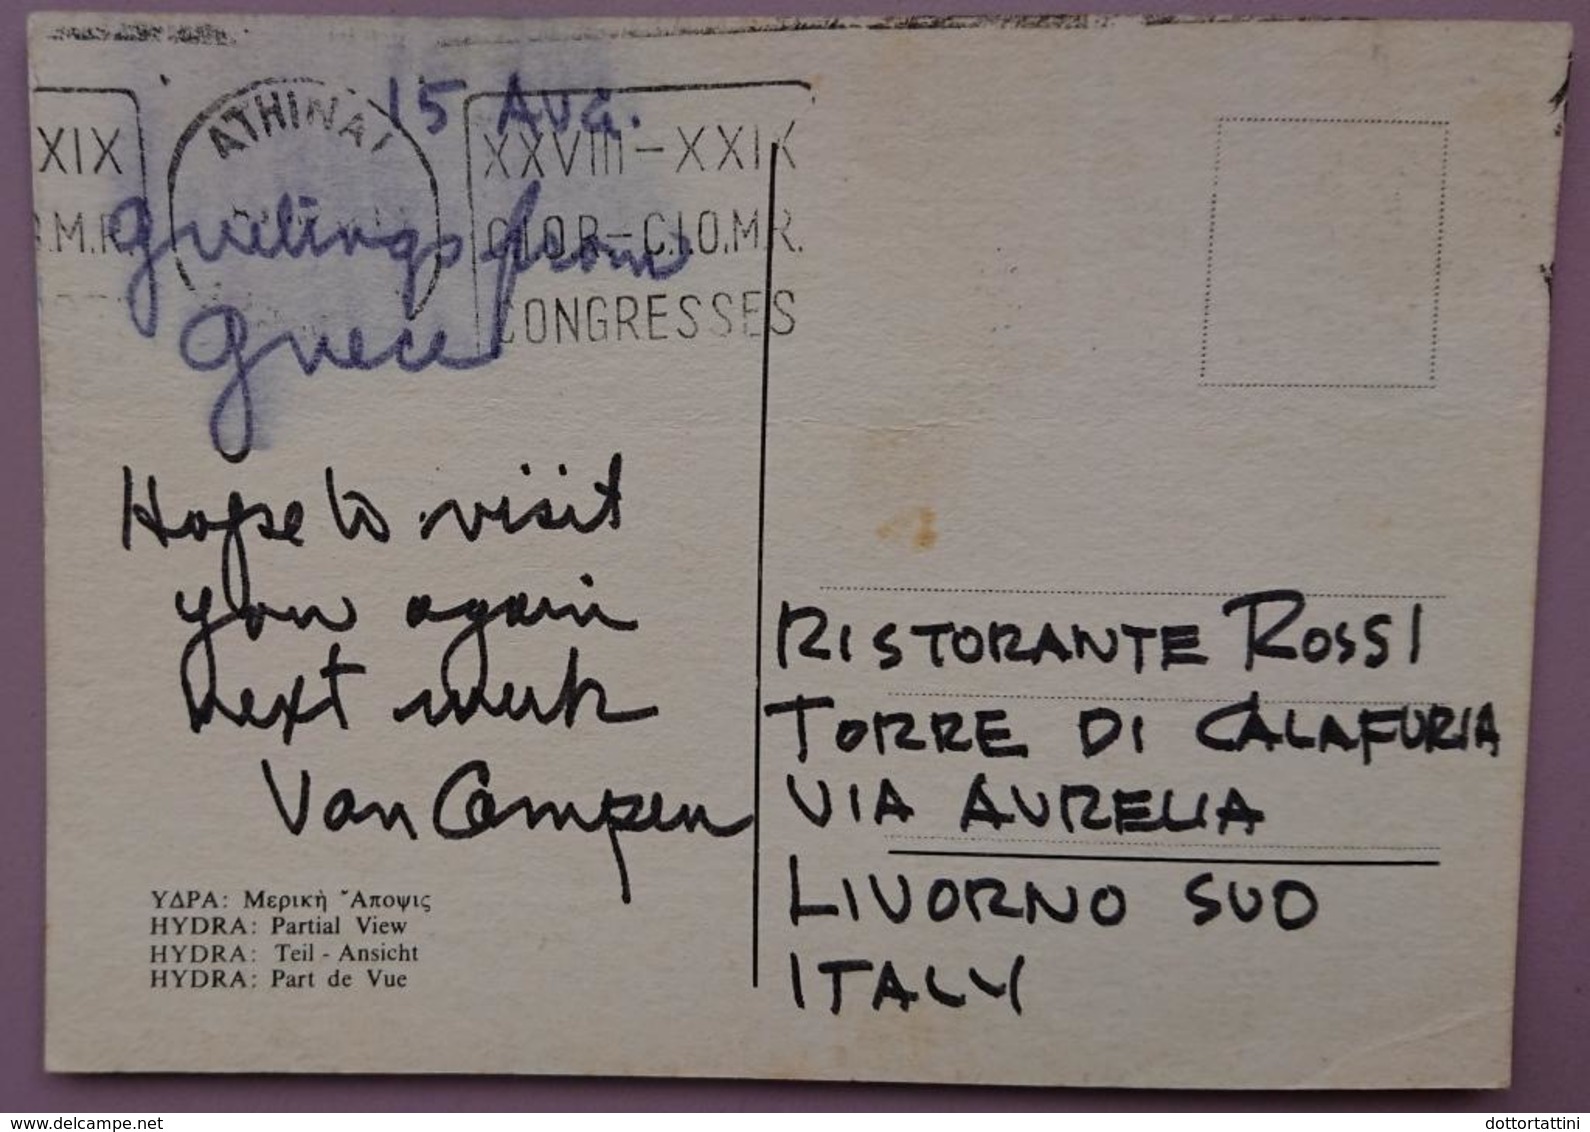 15 Aug.
ATHINAI
XIX
.M.R.
XXVIII-XXIX
C.I.O.R-C.I.O.M.R.
CONGRESSES
Greetings from
Greece
Hope to visit
you again
next week
Van Campen
ΥΔΡΑ: Μερικὴ Ἄποψις
HYDRA: Partial View
HYDRA: Teil - Ansicht
HYDRA: Part de Vue
RISTORANTE ROSSI
TORRE DI CALAFURIA
VIA AURELIA
LIVORNO SUD
ITALY
dottortattini